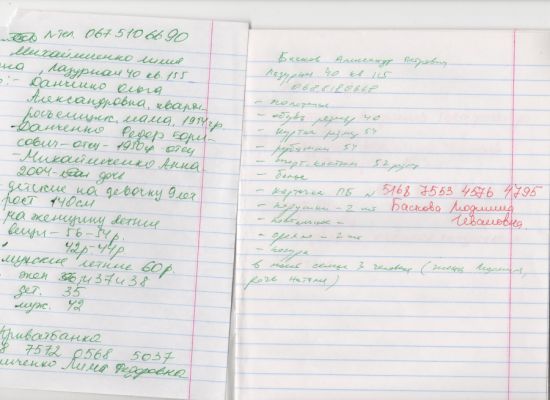 № тел. 067 510 6690
Михайличенко Лилия
, Лазурная 40 кв. 155
Данчинко Ольга
Александровна, кварти-
росъемщик, мама, 1954г.р.
- Данченко Федор Бори-
сович - отец - 1950г. отец
- Михайличенко Анна -
2004 - дочь
детские на девочку 9 лет
рост 140см
на женщину летние
вещи - 56-54р.
42р-44р
мужские летние 60р.
жен 36,и 37 и 38
дет. 35
муж. 42
Приватбанка
8 7572 0568 5037
Лилия Федоровна
Басков Александр Петрович
Лазурная 40 кв 115
- полотенце
- обувь размер 40
- куртка размер 54
- рубашки 54
- спорт. костюм 52 рост
- белье
- карточка ПБ № 5168 7553 4576 4795
- подушки - 2 шт Баскова Людмила
Ивановна.
- одеяло - 2 шт
- посуда
в моей семье 3 человека (жена Людмила,
дочь Натали)